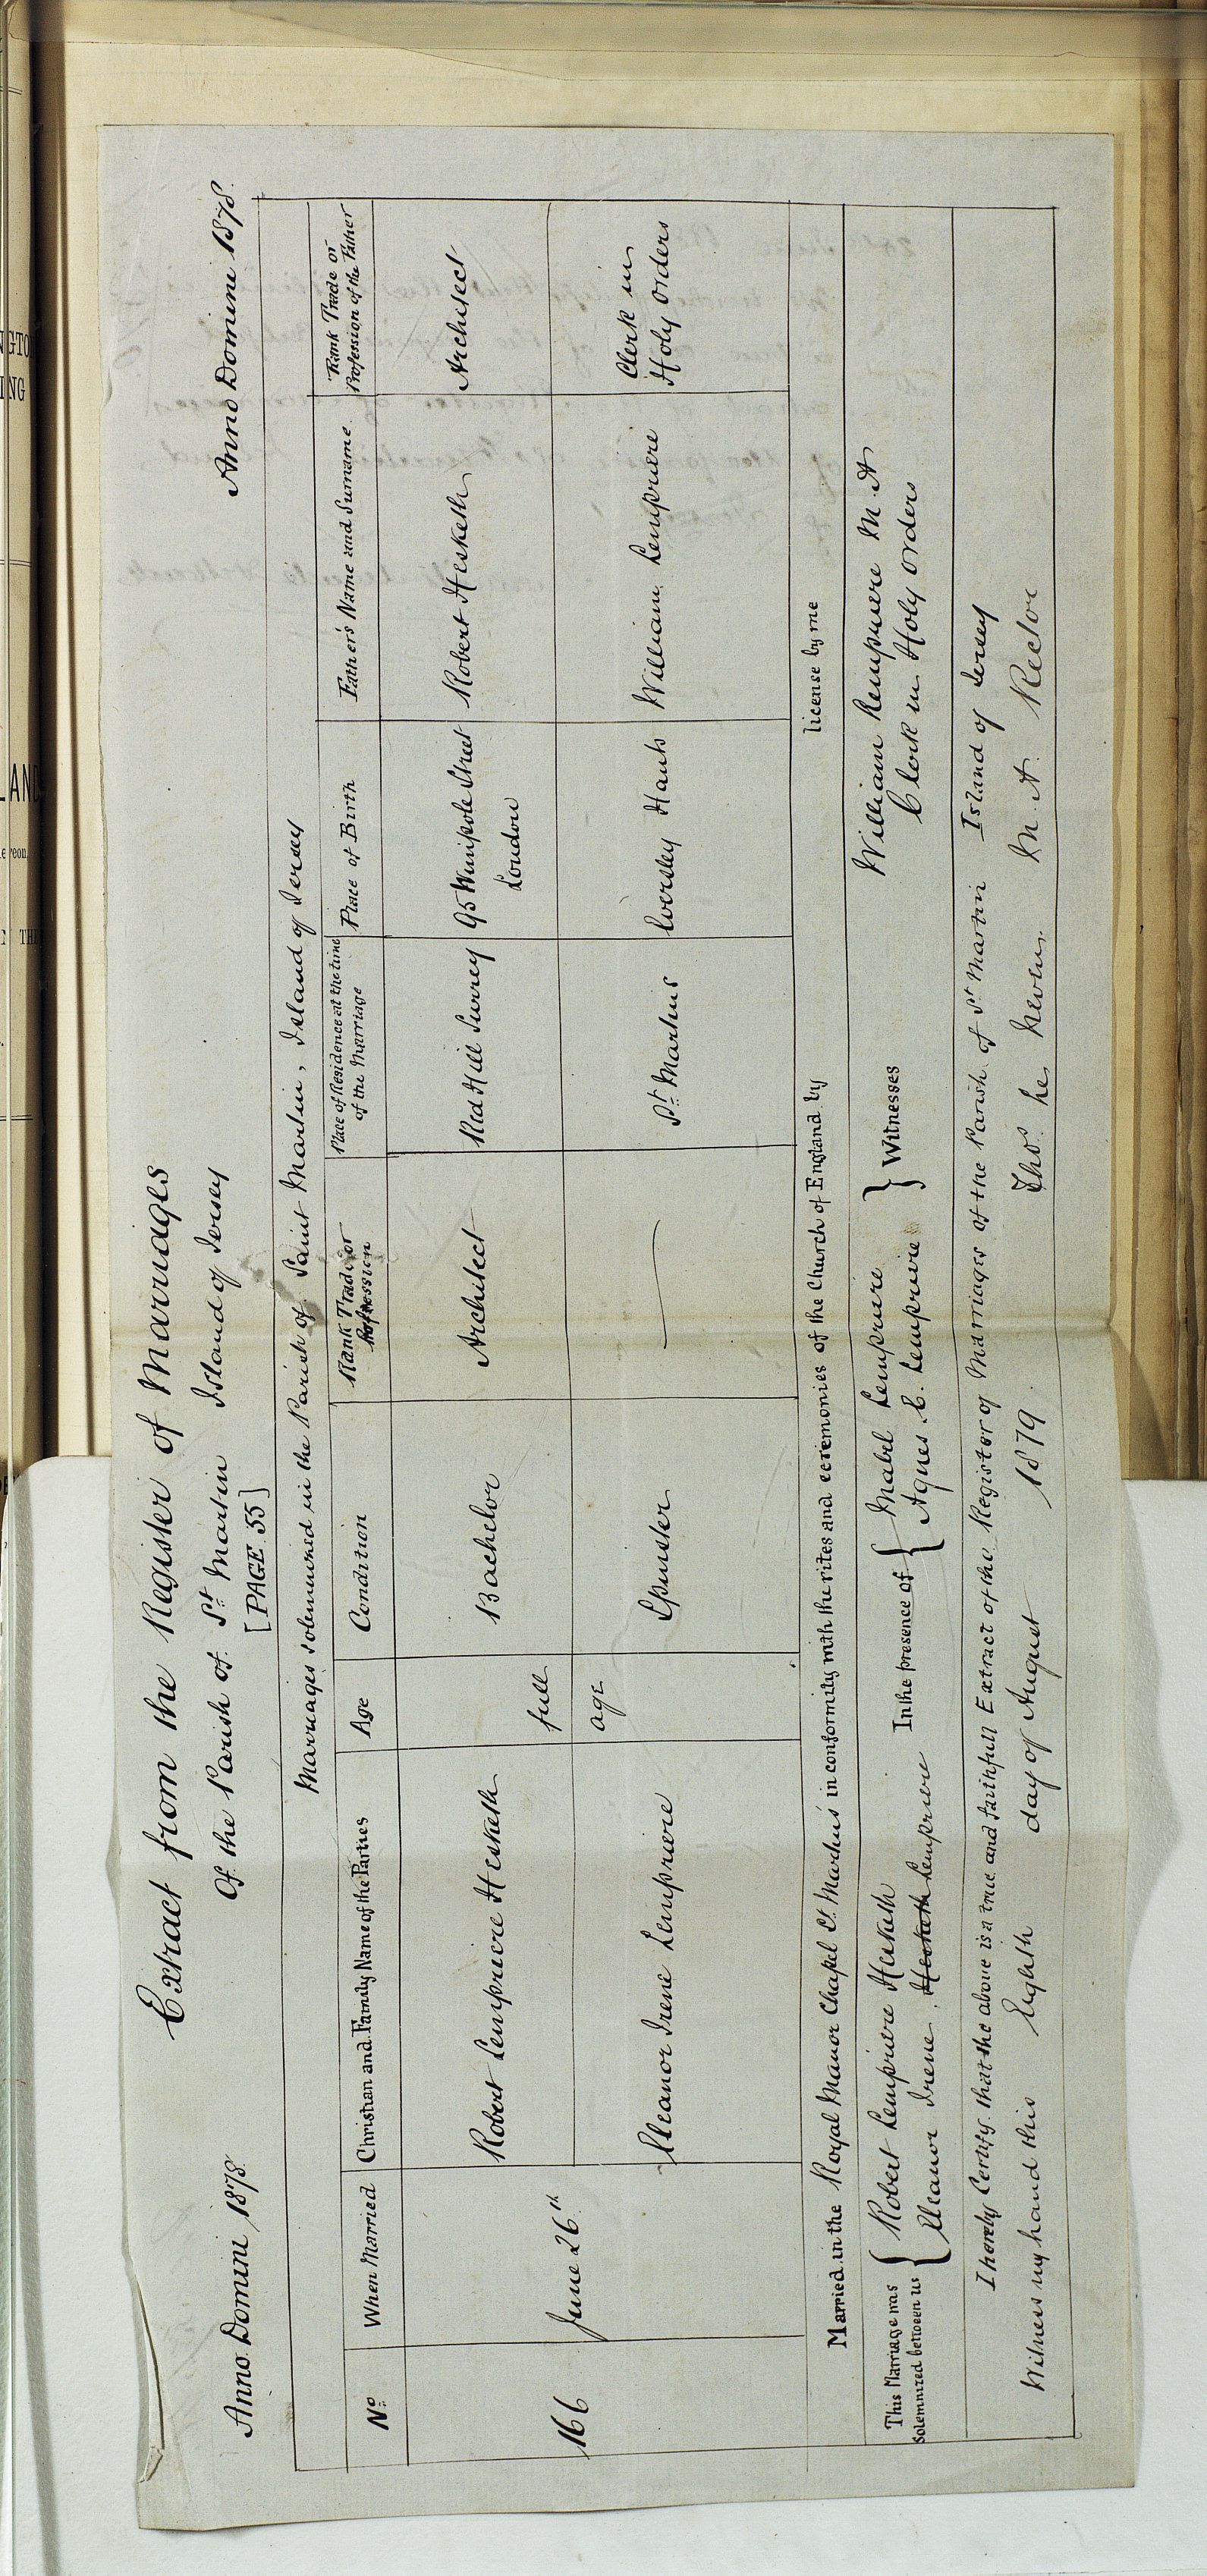 Extract from the Register of Marriages
Anno Domini 1878. Of the Parish of St Martin Island of Jersey Anno Domini 1878.
[PAGE 55]
Marriages solemnized in the Parish of Saint Martin, Island of Jersey
No When Married Christian and Family Name of the Parties Age Condition Rank Trade or Profession Place of Residence at the time of the Marriage Place of Birth Father's Name and Surname Rank Trade or Profession of the Father
166 June 26th Robert Lempriere Hesketh full Bachelor Architect Red Hill Surrey 95 Wimpole Street London Robert Hesketh Architect
Eleanor Irene Lempriere age Spinster — St Martins Eversley Hants William Lempriere Clerk in Holy Orders
Married in the Royal Manor Chapel St Martins in conformity with the rites and ceremonies of the Church of England by license by me
This Marriage was solemnized between us { Robert Lempriere Hesketh In the presence of { Mabel Lempriere } Witnesses William Lempriere M.A
Eleanor Irene Hesketh Lempriere Agnes C. Lempriere Clerk in Holy Orders
I hereby Certify that the above is a true and faithfull Extract of the Register of Marriages of the Parish of St Martin Island of Jersey
Witness my hand this Eighth day of August 1879. Thos Le Neveu M.A. Rector
NGTO
ING
LAND
reon.
THE